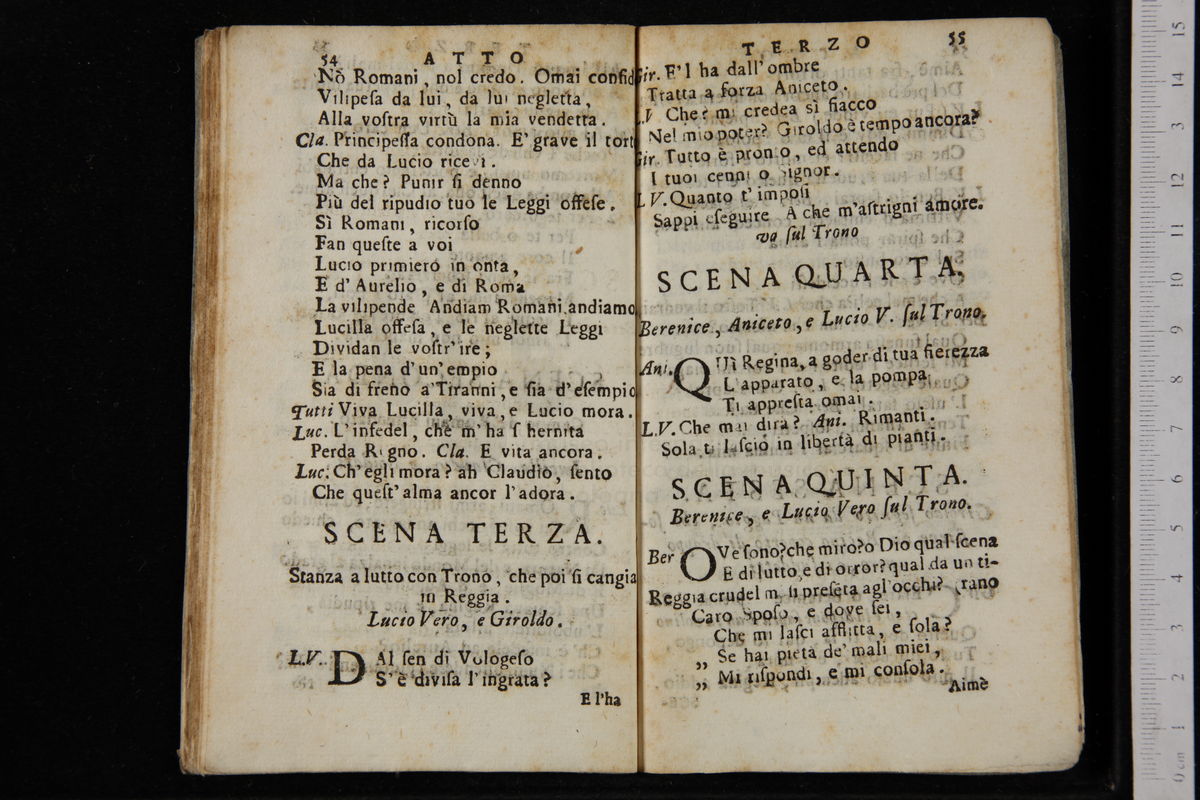 54 ATTO
Nò Romani, nol credo. Omai confid
Vilipeſa da lui, da lui negletta,
Alla voſtra virtù la mia vendetta.
Cla. Principeſſa condona. E' grave il tort
Che da Lucio ricevi.
Ma che? Punir ſi denno
Più del ripudio tuo le Leggi offeſe.
Sì Romani, ricorſo
Fan queſte a voi
Lucio primiero in onta,
E d' Aurelio, e di Roma
La vilipende Andiam Romani andiamo
Lucilla offeſa, e le neglette Leggi
Dividan le voſtr' ire;
E la pena d' un' empio
Sia di freno a' Tiranni, e ſia d' eſempio
Tutti Viva Lucilla, viva, e Lucio mora.
Luc. L' infedel, che m' ha ſ hernita
Perda Regno. Cla. E vita ancora.
Luc. Ch' egli mora? ah Claudio, ſento
Che queſt' alma ancor l' adora.
SCENA TERZA.
Stanza a lutto con Trono, che poi ſi cangia
in Reggia.
Lucio Vero, e Giroldo.
L.V. DAl ſen di Vologeſo
S' è diviſa l' ingrata?
E l'ha
TERZO 55
Gir. E' l ha dall' ombre
Tratta a forza Aniceto.
L.V Che? mi credea sì fiacco
Nel mio poter? Giroldo è tempo ancora?
Gir. Tutto è pronto, ed attendo
I tuoi cenni o Signor.
L V. Quanto t' impoſi
Sappi eſeguire A che m'aſtrigni amore.
va ſul Trono
SCENA QUARTA.
Berenice, Aniceto, e Lucio V. ſul Trono.
Ani. QUì Regina, a goder di tua fierezza
L' apparato, e la pompa
Ti appreſta omai.
L.V. Che mai dirà? Ani. Rimanti.
Sola ti laſcio in libertà di pianti.
SCENA QUINTA.
Berenice, e Lucio Vero ſul Trono.
Ber OVe ſono? che miro? o Dio qual ſcena
E di lutto, e di orror? qual da un ti-
Reggia crudel mi ſi preſẽta agl' occhi? (rano
Caro Spoſo, e dove ſei,
Che mi laſci afflitta, e ſola?
„ Se hai pietà de' mali miei,
„ Mi riſpondi, e mi conſola.
Aimè